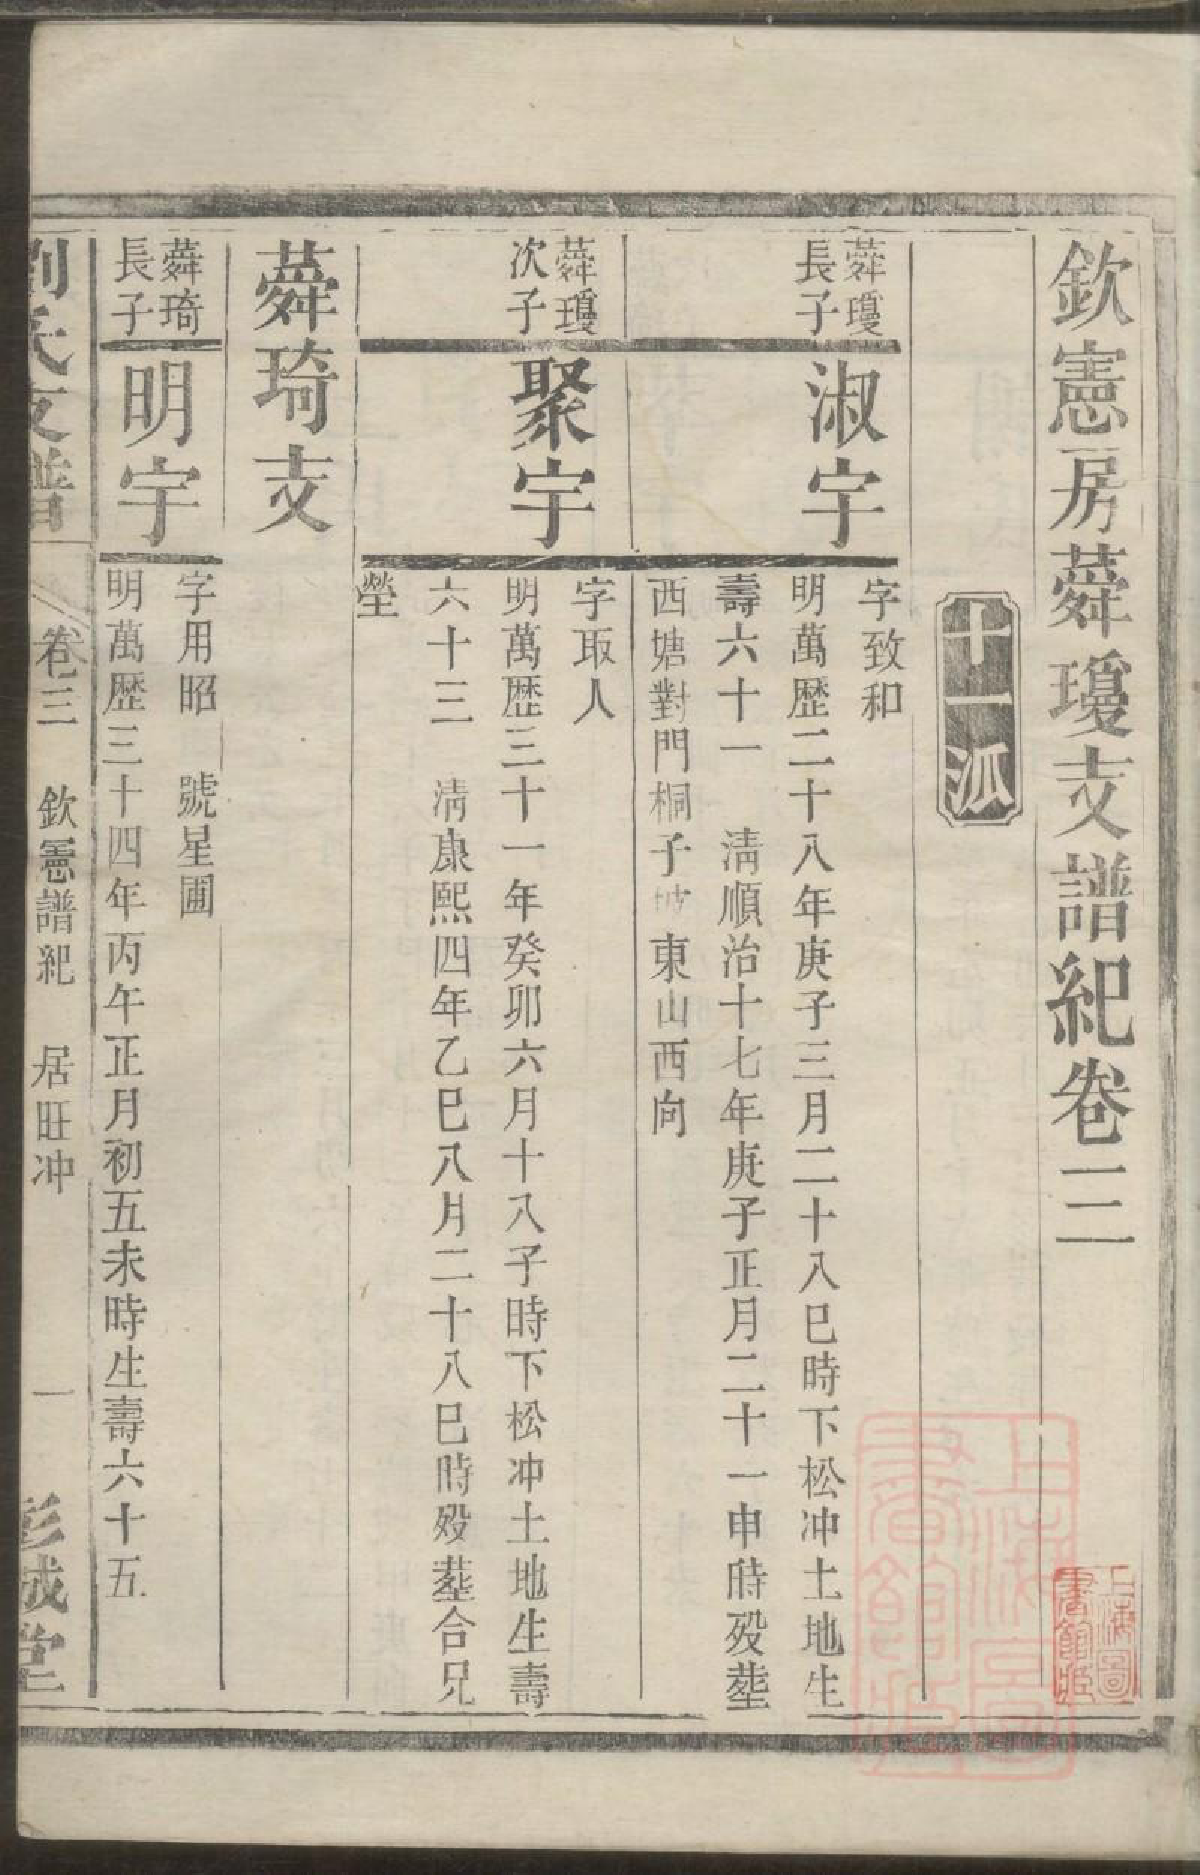 欽憲房蕣瓊支譜紀卷三
十一派
蕣瓊
長子
淑宇
字致和
明萬歷二十八年庚子三月二十八巳時下松冲土地生
壽六十一 清順治十七年庚子正月二十一申時歿塟
西塘對門桐子坡東山西向
蕣瓊
次子
聚宇
字取人
明萬歷三十一年癸卯六月十八子時下松冲土地生壽
六十三 清康熙四年乙巳八月二十八巳時歿塟合兄
塋
蕣琦支
蕣琦
長子
明宇
字用昭 號星圃
明萬歷三十四年丙午正月初五未時生壽六十五
劉氏支譜 卷三 欽憲譜紀 居旺冲 一 彭城堂
上海圖
書館藏
上海圖
書館藏